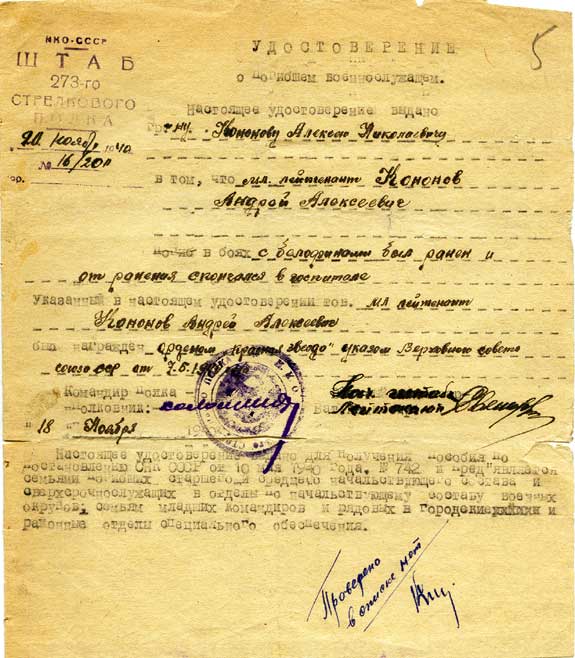 НКО-СССР
ШТАБ
273-го
СТРЕЛКОВОГО
ПОЛКА
20 Ноября 1940
№ 16/201
гор.
5
УДОСТОВЕРЕНИЕ
о погибшем военнослужащем.
Настоящее удостоверение выдано
Кононову Алексею Николаевичу
в том, что мл. лейтенант Кононов
Андрей Алексеевич
Погиб в боях с белофинами был ранен и
от ранения скончался в госпитале
Указанный в настоящем удостоверении тов. мл лейтенант
Кононов Андрей Алексеевич
был награжден орденом "Красная звезда" указом Верховного совета
союза ССР от 7.5.
Командир Полка
Полковник: Нач штаба
Лейтенант
18 " Ноября
Настоящее удостоверение для получения пособия по
постановлению СНК СССР от 1940 года. № 742 и пред"является
семьями погибших старшего и среднего начальствующего состава и
сверхсрочнослужащих в отделы по начальствующему составу военных
округов; семьям младших командиров и рядовых в городские и
районные отделы социального обеспечения.
Проверено
в списке нет